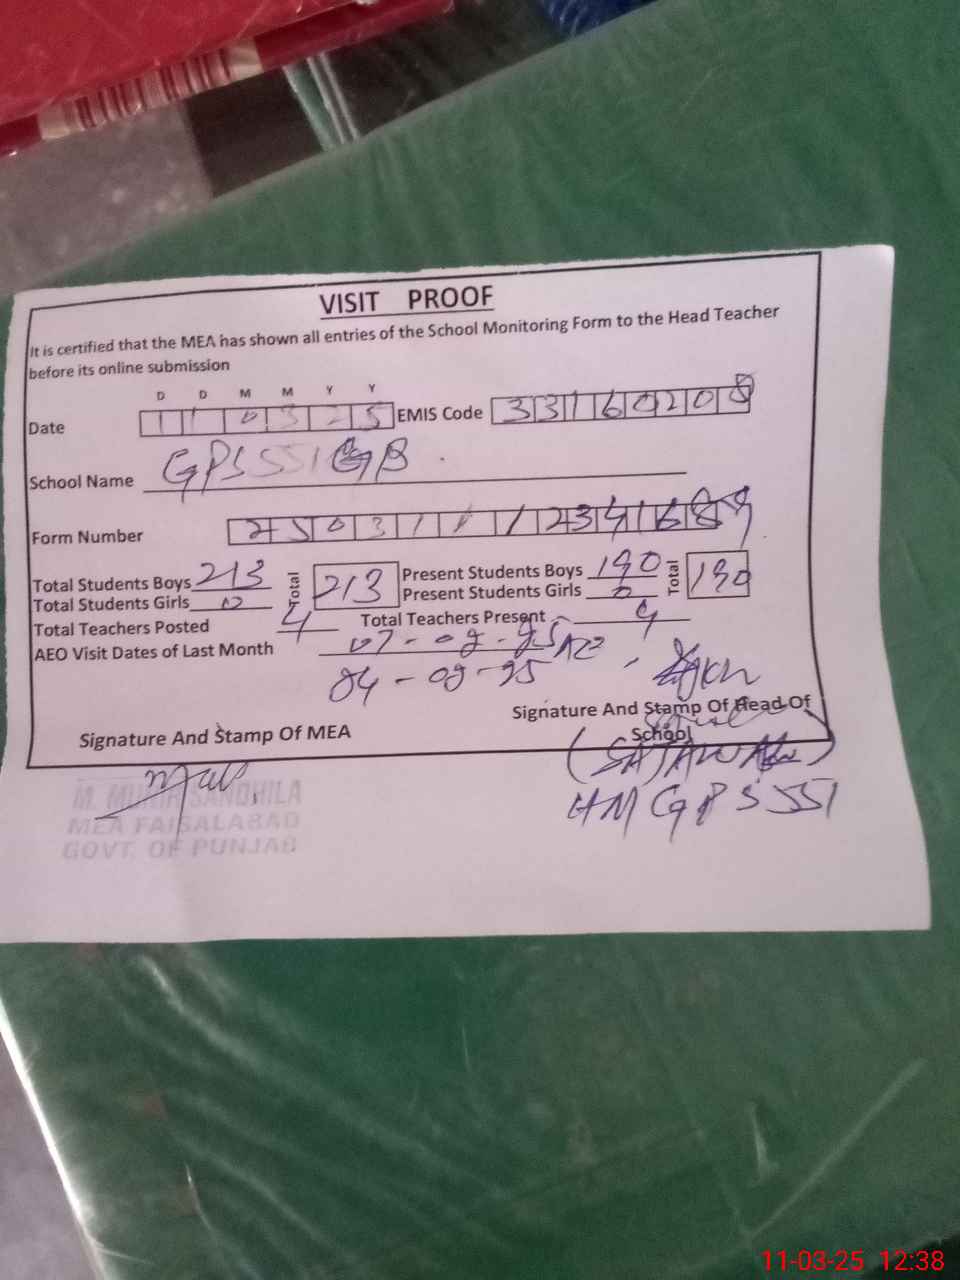 VISIT PROOF
It is certified that the MEA has shown all entries of the School Monitoring Form to the Head Teacher
before its online submission
D D M M Y Y
Date 110325 EMIS Code 33160208
School Name GPS 551 GB
Form Number
Total Students Boys 213 Total 213 Present Students Boys 190 Total 190
Total Students Girls 0 Present Students Girls 0
Total Teachers Posted 4 Total Teachers Present 4
AEO Visit Dates of Last Month
Signature And Stamp Of MEA
Signature And Stamp Of Head Of
School
M. MUNIR SANDHILA
MEA FAISALABAD
GOVT. OF PUNJAB
HM GPS 551
11-03-25 12:38